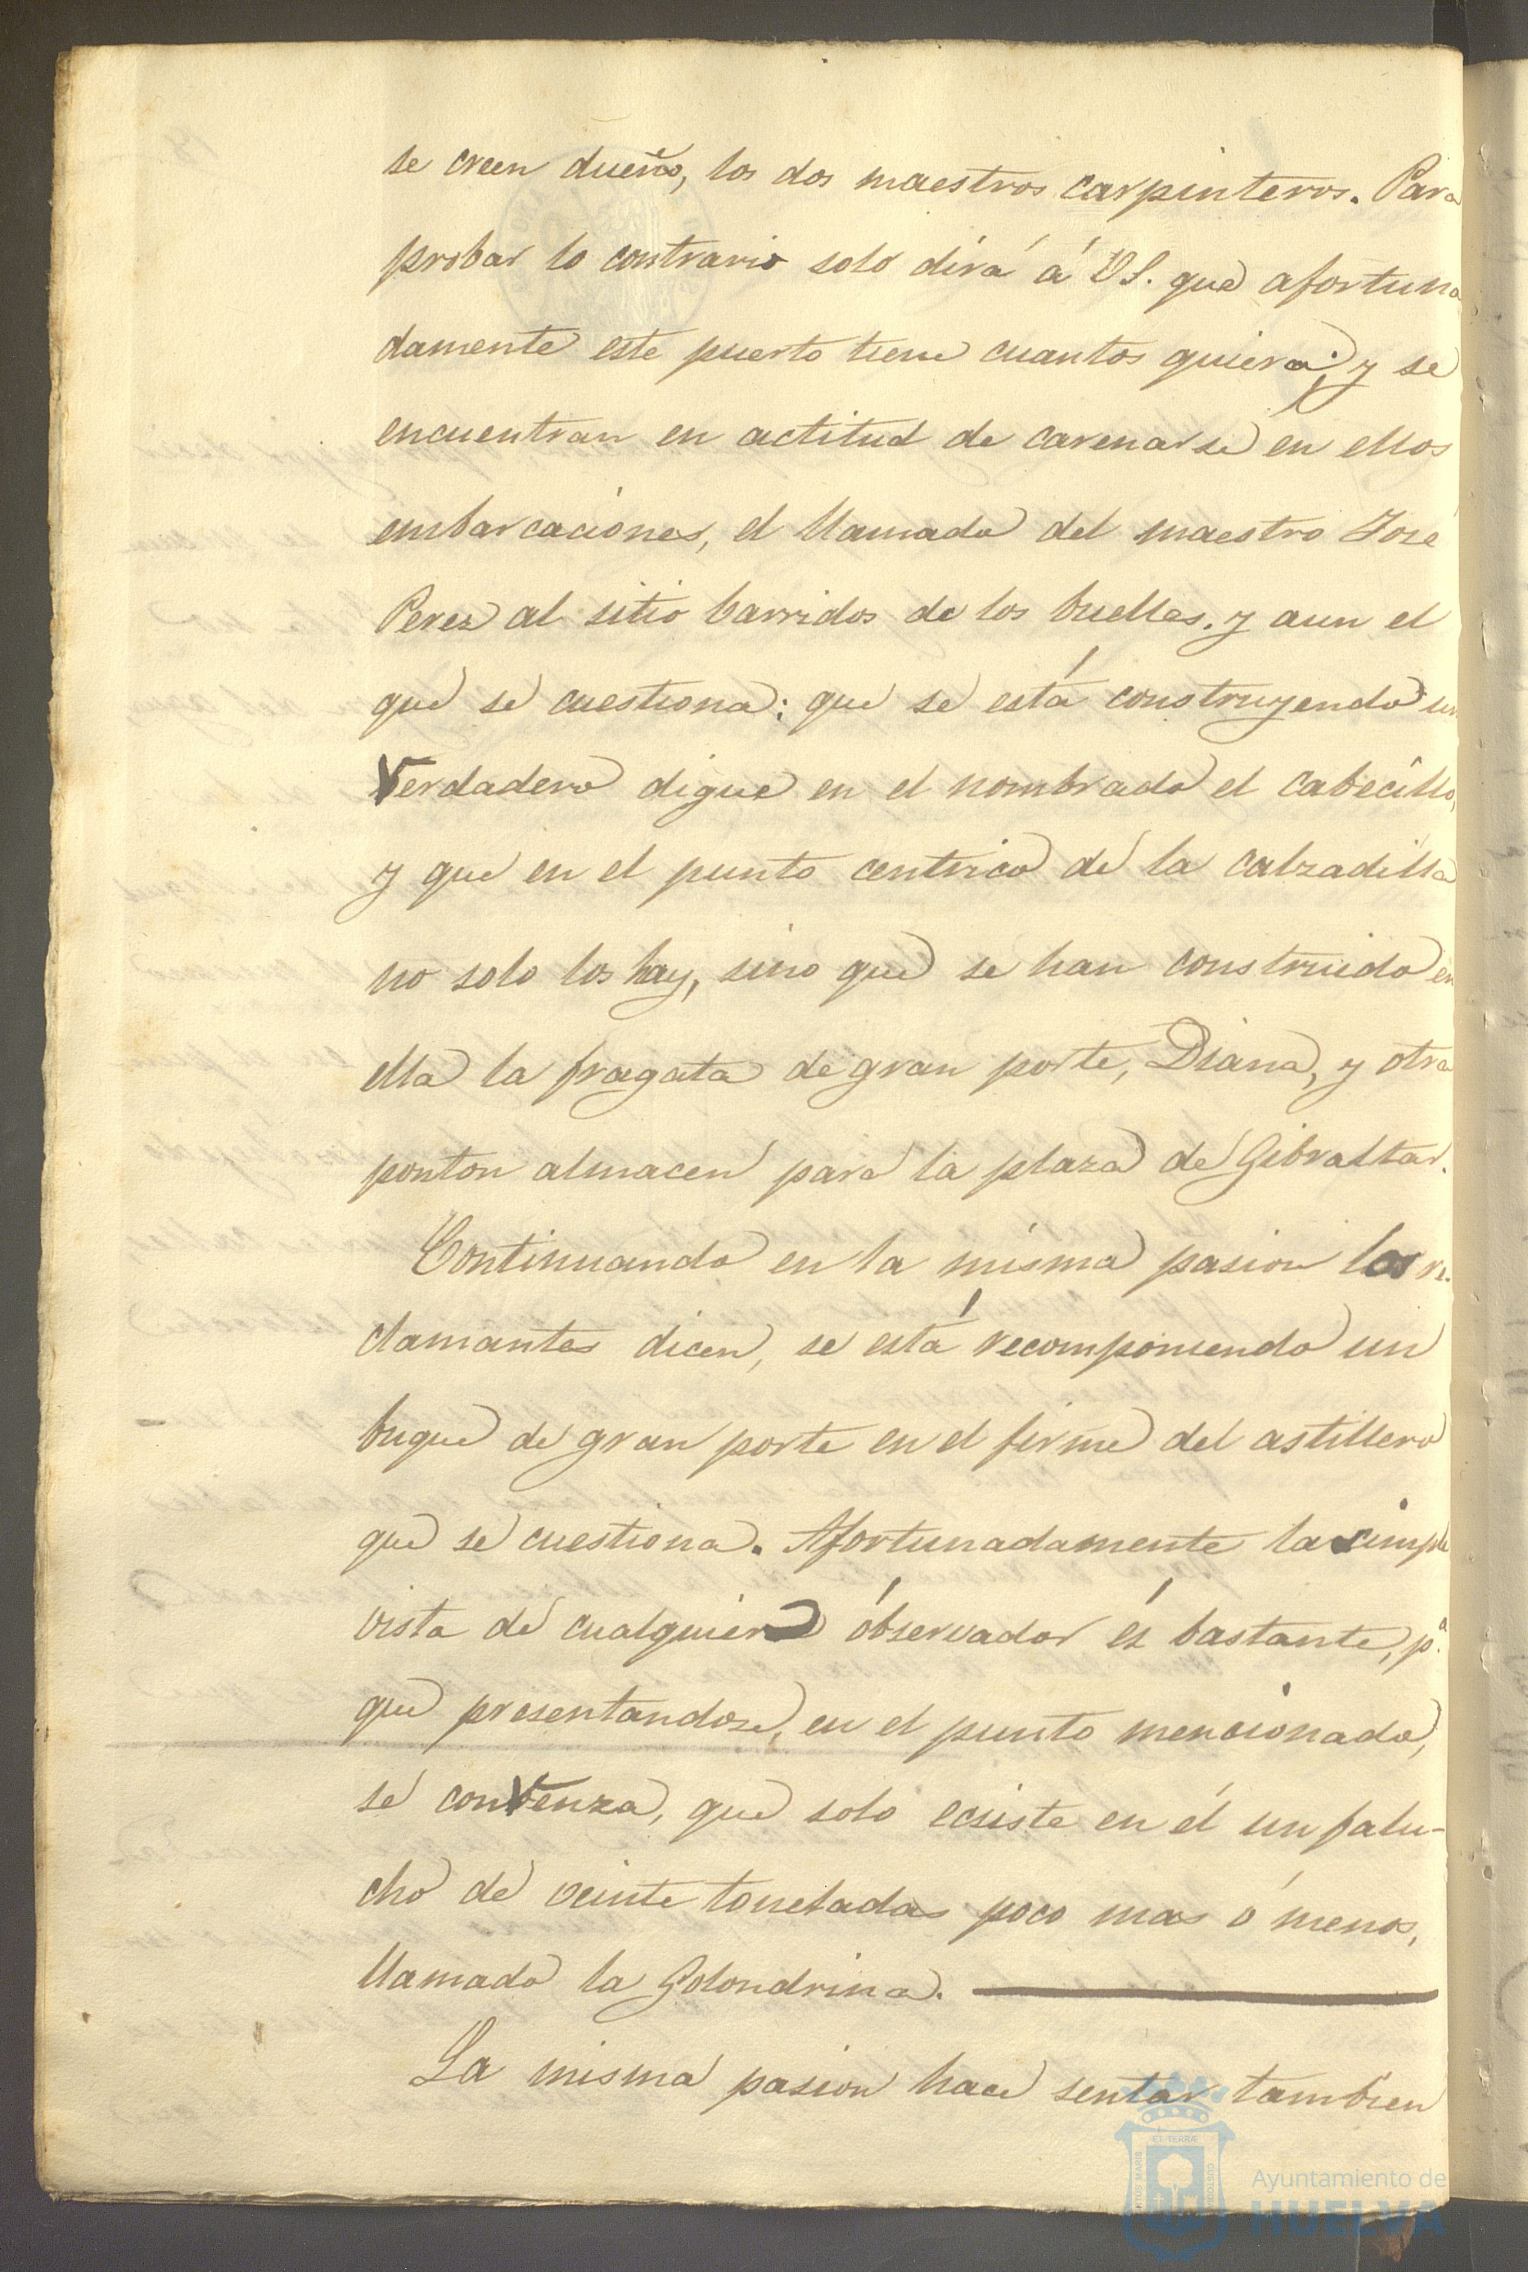 se creen dueño, los dos maestros carpinteros. Para
probar lo contrario solo dirá á VS. que afortuna
damente este puerto tiene cuantos quiera; y se
encuentran en actitud de carenarse en ellos
embarcaciones, el llamado del maestro José
Perez al sitio barridos de los buelles. y aun el
que se cuestiona; que se está construyendo un
Verdadero digue en el nombrado el Cabecillo,
y que en el punto centrico de la calzadilla
no solo los hay, sino que se han construido en
ella la fragata de gran porte, Diana, y otra
ponton almacen para la plaza de Gibraltar.
Continuando en la misma pasion los re-
clamantes dicen, se está recomponiendo un
buque de gran porte en el firme del astillero
que se cuestiona. Afortunadamente la simple
vista de cualquiera observador es bastante, p.ª
que presentandose, en el punto mencionado,
se convenza, que solo ecsiste en él un falu-
cho de veinte toneladas poco mas ó menos,
llamado la Golondrina.
La misma pasion hace sentar tambien
Ayuntamiento de
HUELVA